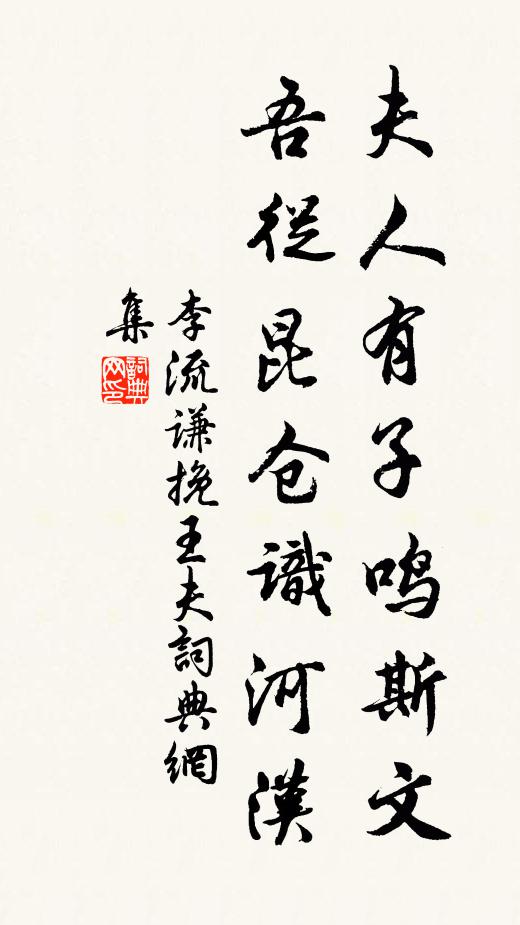 夫人有子鸣斯文
吾從昆仓識河漢
李流谦挽王夫詞典網
集
詞典
网印